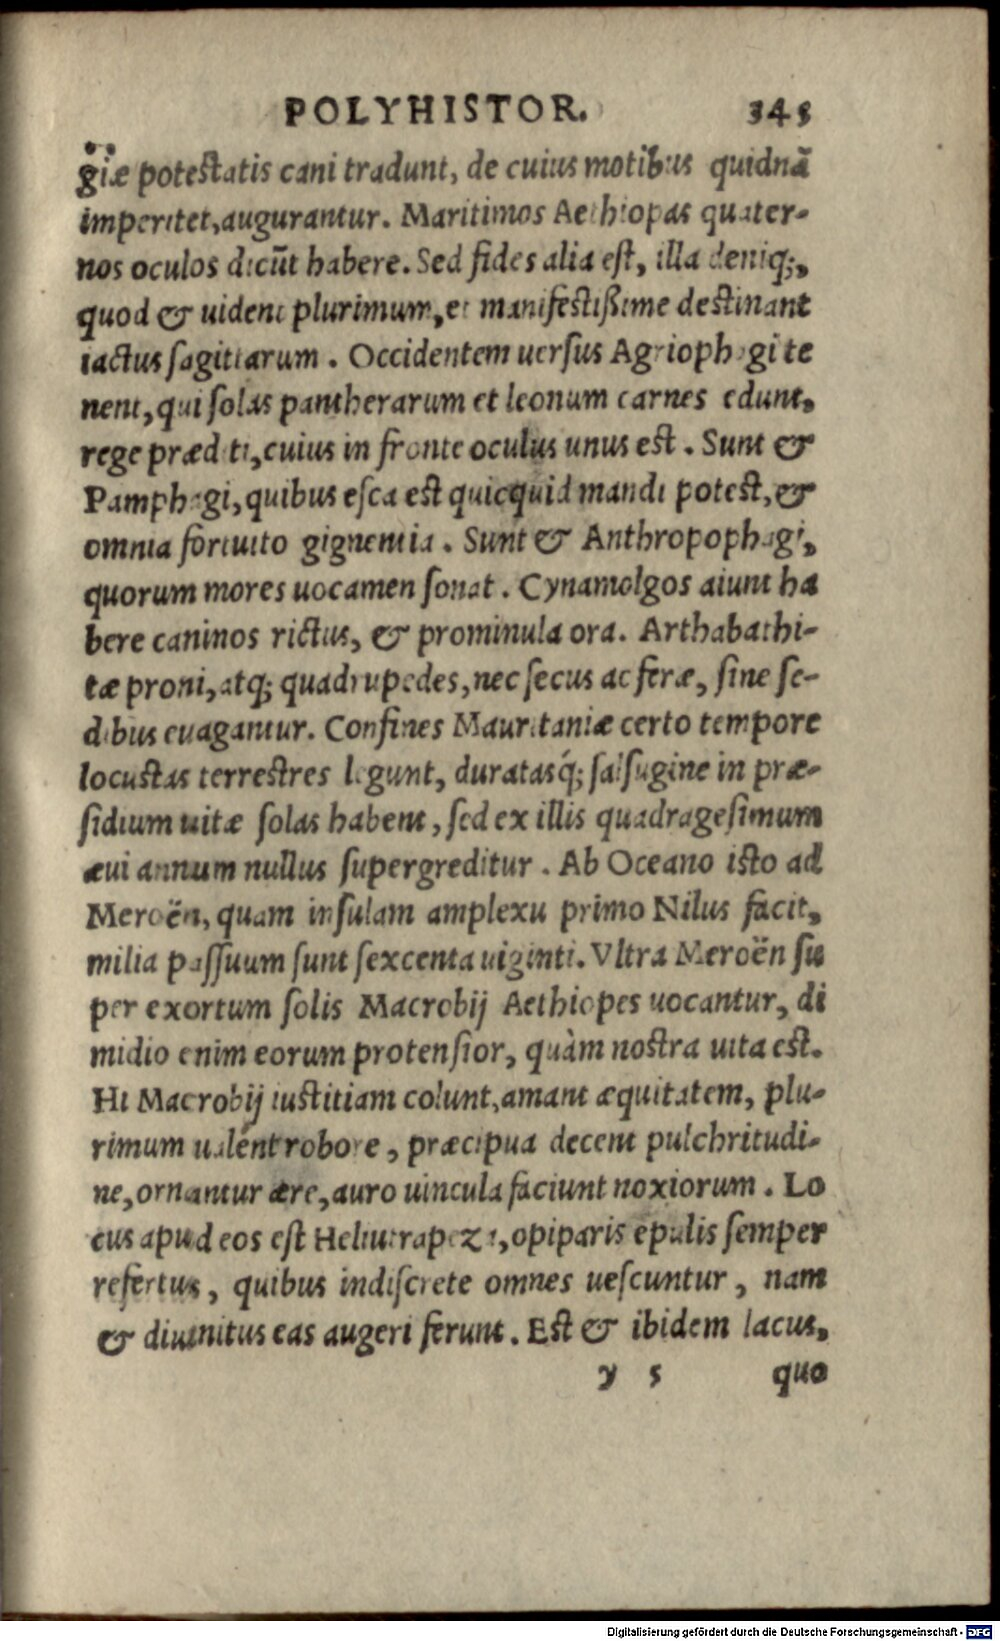 POLYHISTOR. 345
giæ potestatis cani tradunt, de cuius motibus quidnā
imperitet, augurantur. Maritimos Aethiopas quater-
nos oculos dicūt habere. Sed fides alia est, illa deniq;,
quod & uident plurimum, et manifestißime destinant
iactus sagittarum. Occidentem uersus Agriophagi te
nent, qui solas pantherarum et leonum carnes edunt,
rege præditi, cuius in fronte oculus unus est. Sunt &
Pamphagi, quibus esca est quicquid mandi potest, &
omnia fortuito gignentia. Sunt & Anthropophagi,
quorum mores uocamen sonat. Cynamolgos aiunt ha
bere caninos rictus, & prominula ora. Arthabathi-
tæ proni, atq; quadrupedes, nec secus ac feræ, sine se-
dibus euagantur. Confines Mauritaniæ certo tempore
locustas terrestres legunt, duratasq́; salsugine in præ-
sidium uitæ solas habent, sed ex illis quadragesimum
æui annum nullus supergreditur. Ab Oceano isto ad
Meroën, quam insulam amplexu primo Nilus facit,
milia passuum sunt sexcenta uiginti. Vltra Meroën su
per exortum solis Macrobij Aethiopes uocantur, di
midio enim eorum protensior, quàm nostra uita est.
Hi Macrobij iustitiam colunt, amant æquitatem, plu-
rimum ualent robore, præcipua decent pulchritudi-
ne, ornantur ære, auro uincula faciunt noxiorum. Lo
cus apud eos est Heliutrapeza, opiparis epulis semper
refertus, quibus indiscrete omnes uescuntur, nam
& diuinitus eas augeri ferunt. Est & ibidem lacus,
y 5 quo
Digitalisierung gefördert durch die Deutsche Forschungsgemeinschaft - DFG